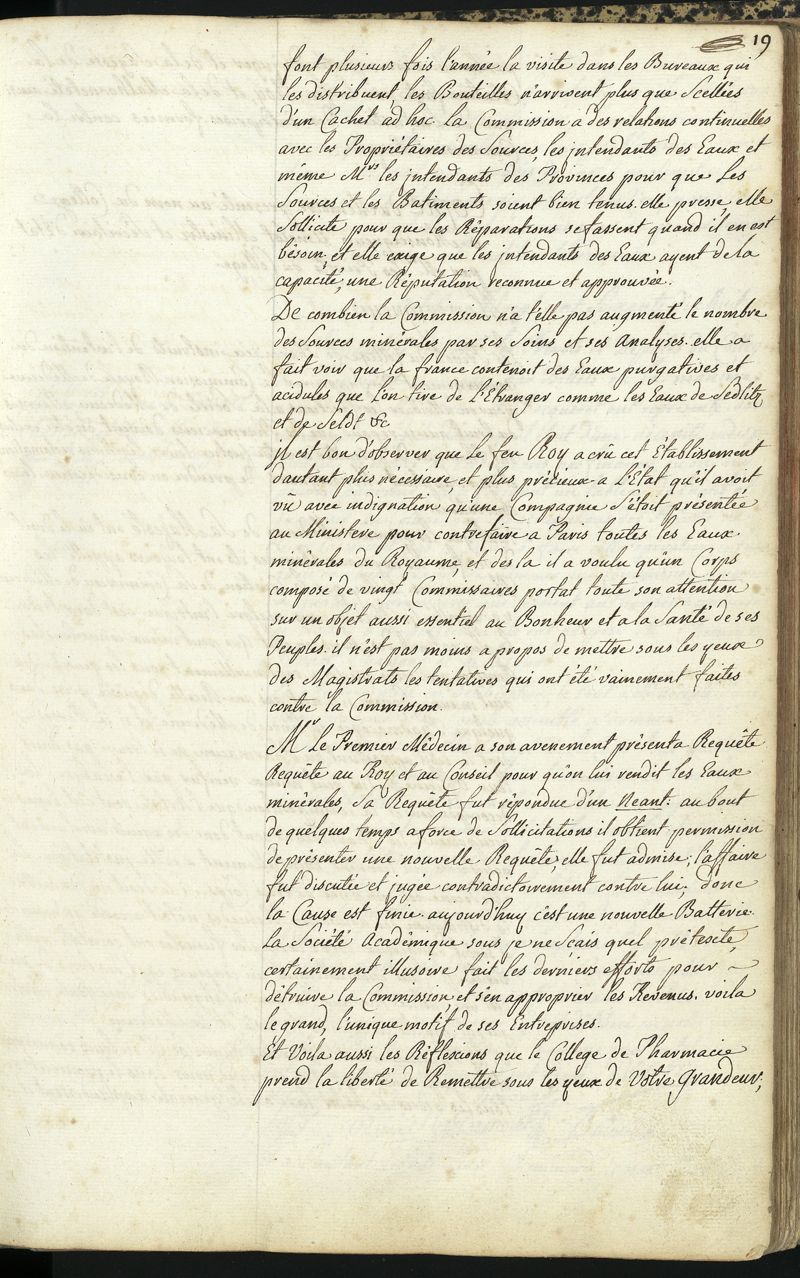 19
font plusieurs fois l'année la visite dans les Bureaux qui
les distribuent, les Bouteilles n'arrivent plus que Scellées
d'un Cachet ad hoc. La Commission a des relations continuelles
avec les Propriétaires des Sources, les jntendants des Eaux et
même Mrs les jntendants des Provinces pour que Les
Sources et les Batiments soient bien tenus. elle presse, elle
Sollicite pour que les Réparations se fassent quand il en est
bésoin, et elle exige que les jntendants des Eaux ayent de la
capacité, une Réputation reconnue et approuvée.
De combien la Commission n'a t'elle pas augmenté le nombre
des Sources minérales par ses Soins et ses Analyses. elle a
fait voir que la france contenoit des Eaux purgatives et
acidules que l'on tire de L'Etranger comme les Eaux de Sedlitz
et de Seldt &c
jl est bon d'observer que Le feu Roy a crû cet Etablissement
dautant plus nécessaire, et plus précieux a L'Etat qu'il avoit
vû avec indignation qu'une Compagnie S'étoit présentée
au Ministere pour contrefaire a Paris toutes les Eaux
minérales du Royaume, et des la il a voulu qu'un Corps
composé de vingt Commissaires portat toute son attention
sur un objet aussi essentiel au Bonheur et a la Santé de ses
Peuples. il n'est pas moins apropos de mettre sous les yeux
des Magistrats les tentatives qui ont été vainement faites
contre la Commission.
Mr Le Premier Médecin a son avenement présenta Requête
Requête au Roy et au Conseil pour qu'on lui rendit les Eaux
minérales, Sa Requête fut répondue d'un Neant: au bout
de quelques temps a force de Sollicitations il obtient permission
de présenter une nouvelle Requête, elle fut admise; l'affaire
fut discutée et jugée contradictoirement contre lui; donc
la Cause est finie. aujourd'huy c'est une nouvelle Batterie.
La Société Académique sous je ne Scais quel prétexte,
certainement illusoire fait les derniers efforts pour
détruire la Commission, et s'en approprier les Revenus. voila
le grand, l'unique motif de ses Entreprises.
Et Voila aussi les Réflexions que le College de Pharmacie
prend la liberté de Remettre sous les yeux de Votre grandeur;